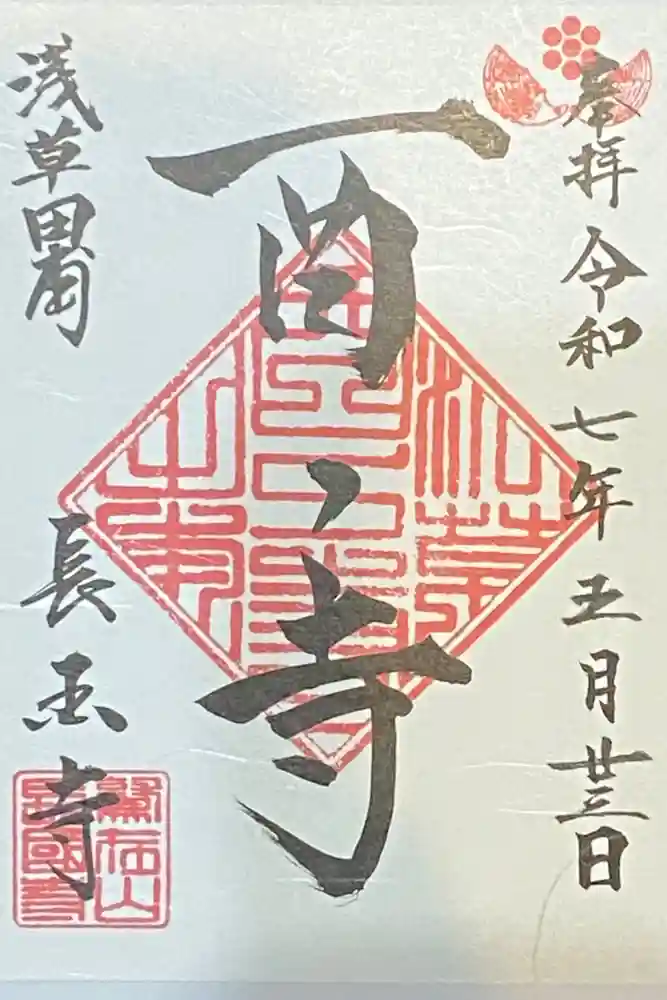 奉拝 令和七年五月廿三日
酉ノ寺
浅草田甫
長国寺
鷲在山
長國寺